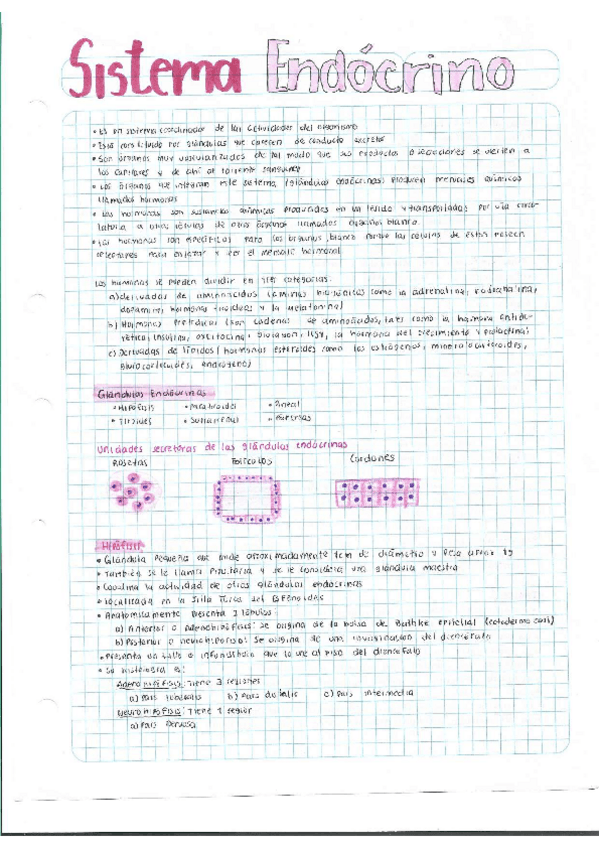 Sistema Endócrino
• Es un sistema coordinador de las actividades del organismo
• Está constituido por glándulas que carecen de conducto excretor
• Son órganos muy vascularizados de tal modo que sus productos o secreciones se vierten a
los capilares y de ahí al torrente sanguíneo
• Los órganos que integran este sistema (glándulas endócrinas) producen mensajes químicos
llamados hormonas
• Las hormonas son sustancias químicas producidas en un tejido y transportadas por vía circu-
latoria a otras células de otros órganos llamados órganos blanco
• Las hormonas son específicas para los órganos blanco porque las células de estos poseen
receptores para captar y leer el mensaje hormonal
Las hormonas se pueden dividir en tres categorías:
a) derivadas de aminoácidos (aminas biogénicas como la adrenalina, noradrenalina,
dopamina, hormonas tiroideas y la melatonina)
b) Hormonas Peptídicas (son cadenas de aminoácidos, tales como la hormona antidiu-
rética, insulina, oxitocina, glucagon, la hormona del crecimiento y prolactina)
c) Derivadas de lípidos (hormonas esteroides como los estrógenos, mineralocorticoides,
glucocorticoides, andrógeno)
Glándulas Endócrinas
• Hipófisis • Paratiroides • Pineal
• Tiroides • Suprarrenal • Páncreas
Unidades secretoras de las glándulas endócrinas
Rosetas Folículos Cordones
Hipófisis
• Glándula pequeña que mide aproximadamente 1cm de diámetro y pesa 1g
• También se le llama Pituitaria y se le considera una glándula maestra
• Coordina la actividad de otras glándulas endócrinas
• Localizada en la Silla Turca del Esfenoides
• Anatómicamente presenta 2 lóbulos:
a) Anterior o adenohipófisis: Se origina de la bolsa de Rathke epitelial (ectodermo oral)
b) Posterior o neurohipófisis: Se origina de una invaginación del diencéfalo
• Presenta un tallo o infundíbulo que lo une al piso del diencéfalo
• Su histología es:
Adenohipófisis: Tiene 3 regiones
a) Pars tuberalis b) Pars distalis c) Pars intermedia
Neurohipófisis: Tiene 1 región
a) Pars nervosa